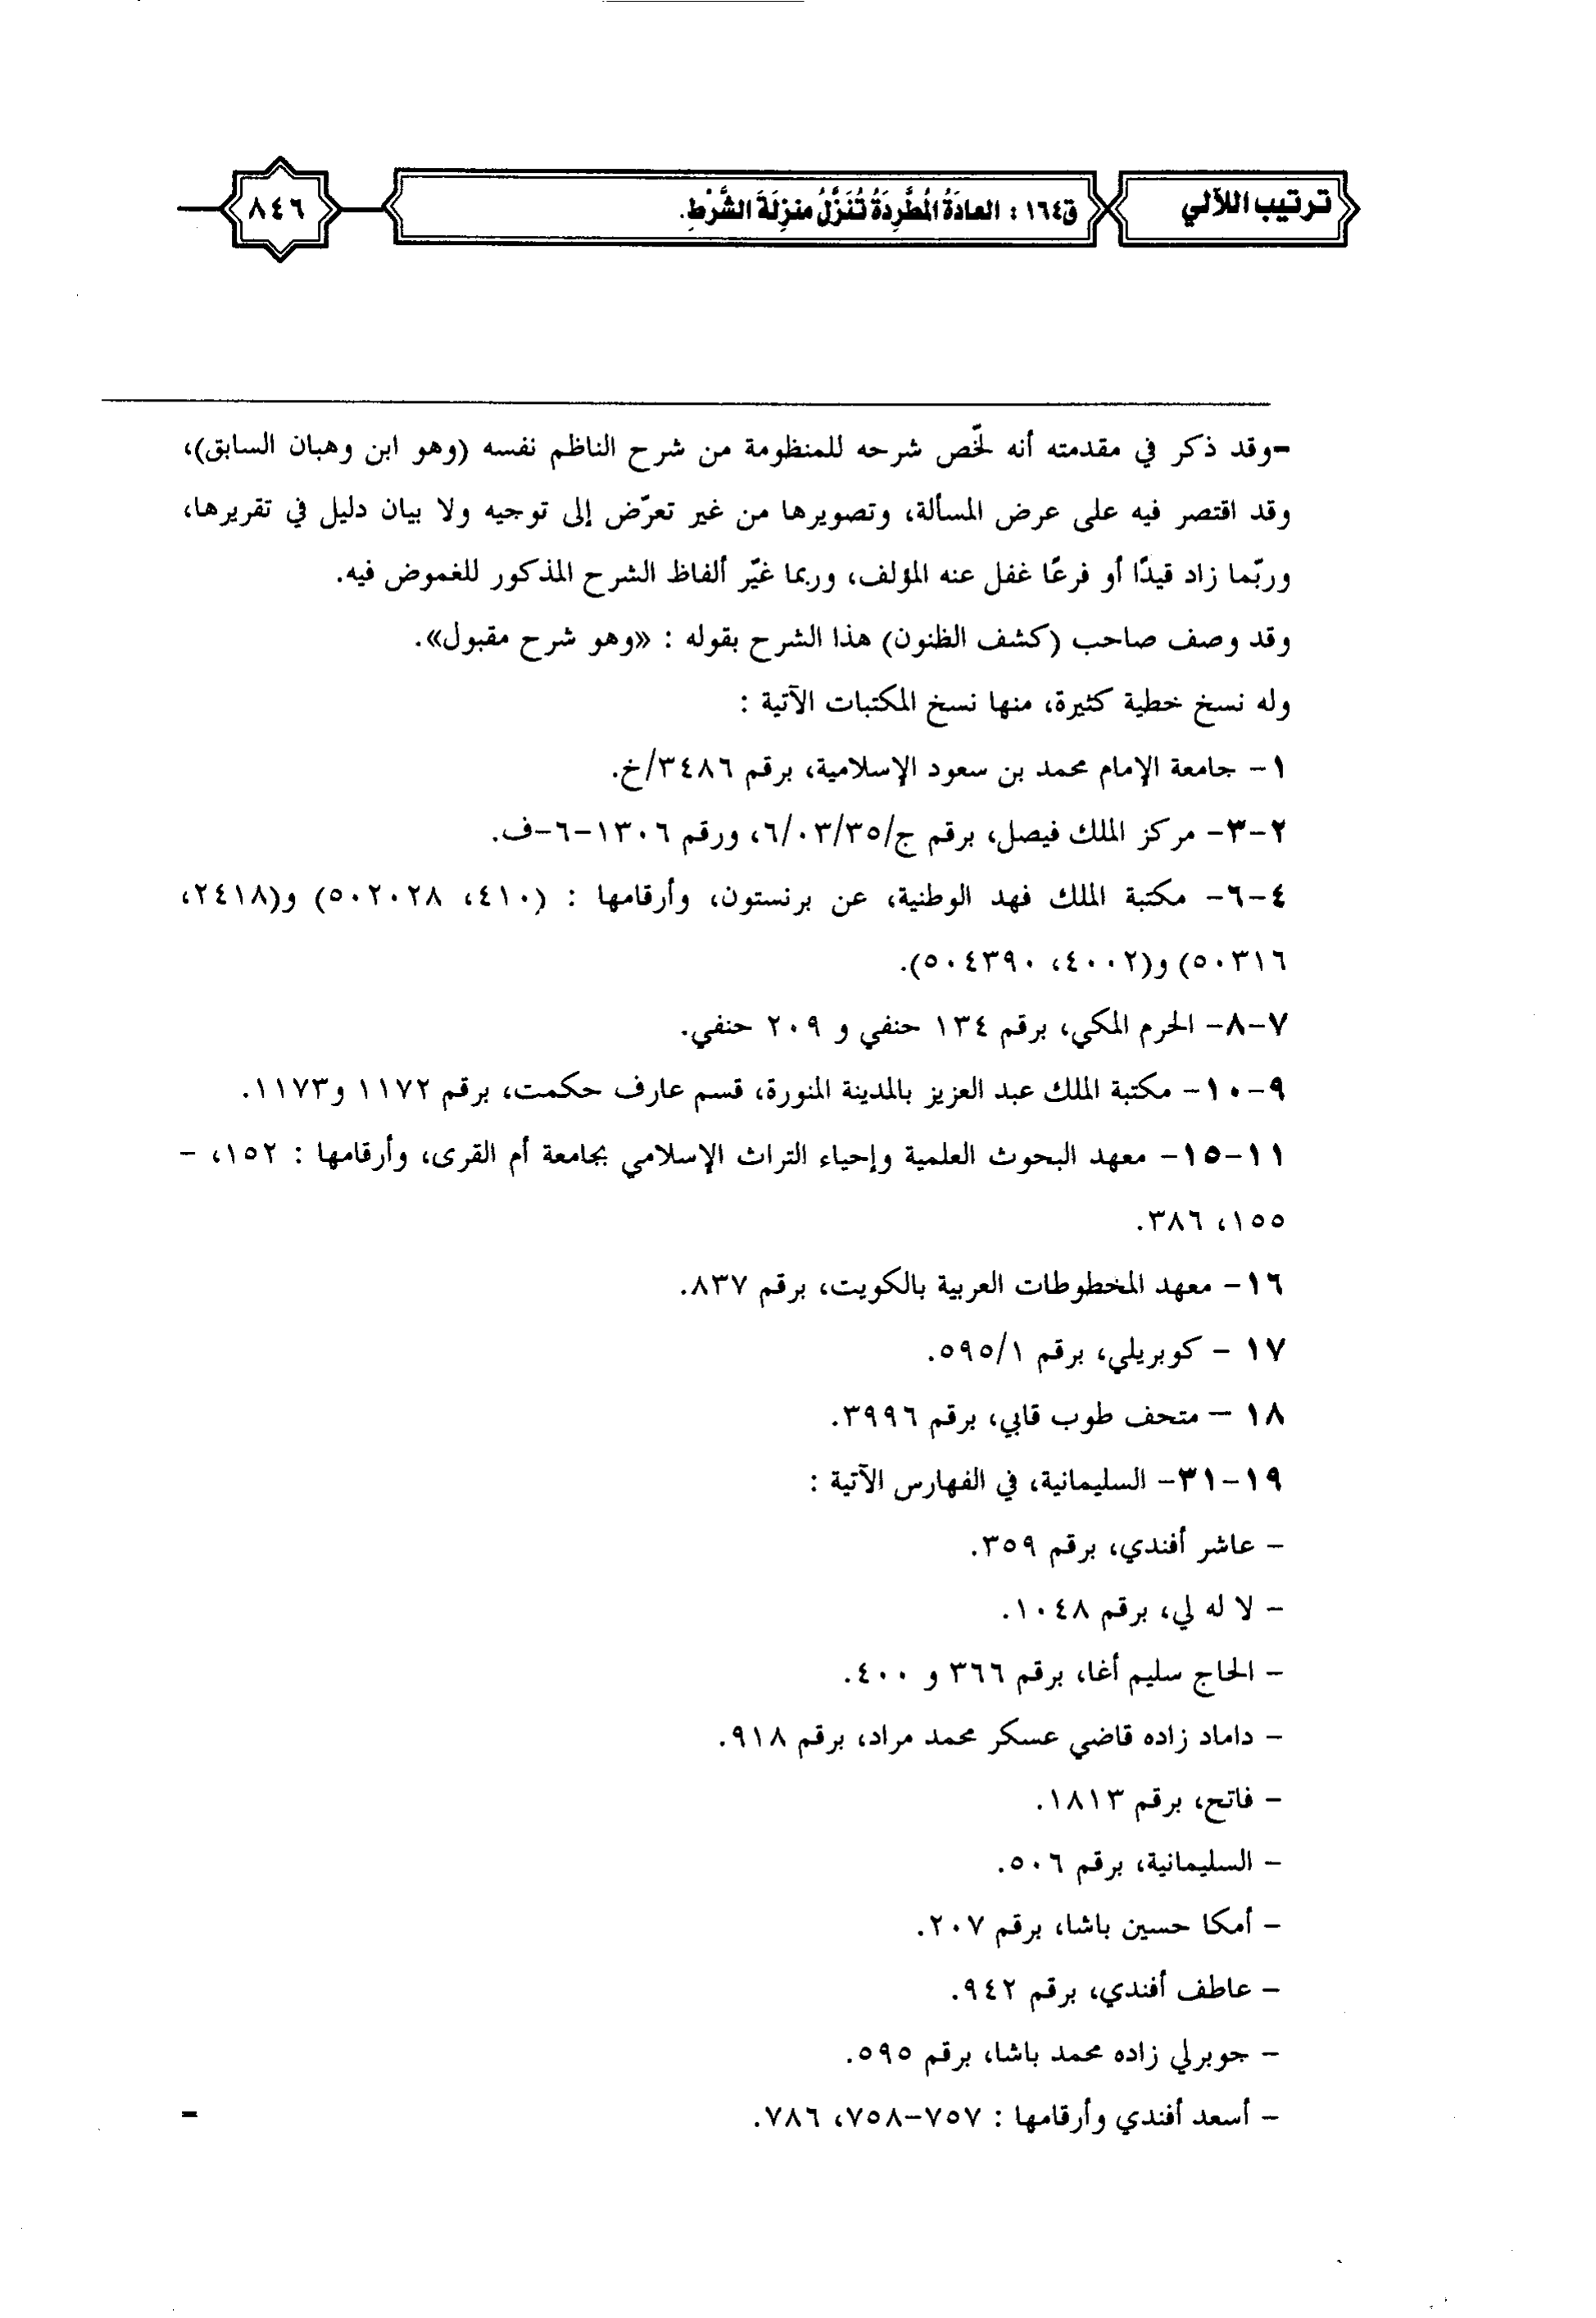 ترتيب اللآلي
ق١٦٤ : العادَةُ المُطَّرِدَةُ تُنَزَّلُ منزِلَةَ الشَّرْطِ.
٨٤٦
=وقد ذكر في مقدمته أنه لخّص شرحه للمنظومة من شرح الناظم نفسه (وهو ابن وهبان السابق)،
وقد اقتصر فيه على عرض المسألة، وتصويرها من غير تعرّض إلى توجيه ولا بيان دليل في تقريرها،
وربّما زاد قيدًا أو فرعًا غفل عنه المؤلف، وربما غيّر ألفاظ الشرح المذكور للغموض فيه.
وقد وصف صاحب (كشف الظنون) هذا الشرح بقوله : «وهو شرح مقبول».
وله نسخ خطية كثيرة، منها نسخ المكتبات الآتية :
١- جامعة الإمام محمد بن سعود الإسلامية، برقم ٣٤٨٦/خ.
٢-٣- مركز الملك فيصل، برقم ج/٦/٠٣/٣٥، ورقم ١٣٠٦-٦-ف.
٤-٦- مكتبة الملك فهد الوطنية، عن برنستون، وأرقامها : (٤١٠، ٥٠٢٠٢٨) و(٢٤١٨،
٥٠٣١٦) و(٤٠٠٢، ٥٠٤٣٩٠).
٧-٨- الحرم المكي، برقم ١٣٤ حنفي و ٢٠٩ حنفي.
٩-١٠- مكتبة الملك عبد العزيز بالمدينة المنورة، قسم عارف حكمت، برقم ١١٧٢ و١١٧٣.
١١-١٥- معهد البحوث العلمية وإحياء التراث الإسلامي بجامعة أم القرى، وأرقامها : ١٥٢، -
١٥٥، ٣٨٦.
١٦- معهد المخطوطات العربية بالكويت، برقم ٨٣٧.
١٧ - كوبريلي، برقم ٥٩٥/١.
١٨ – متحف طوب قابي، برقم ٣٩٩٦.
١٩-٣١- السليمانية، في الفهارس الآتية :
- عاشر أفندي، برقم ٣٥٩.
- لا له لي، برقم ١٠٤٨.
- الحاج سليم أغا، برقم ٣٦٦ و ٤٠٠.
- داماد زاده قاضي عسكر محمد مراد، برقم ٩١٨.
- فاتح، برقم ١٨١٣.
- السليمانية، برقم ٥٠٦.
- أمكا حسين باشا، برقم ٢٠٧.
- عاطف أفندي، برقم ٩٤٢.
- جوبرلي زاده محمد باشا، برقم ٥٩٥.
- أسعد أفندي وأرقامها : ٧٥٧-٧٥٨، ٧٨٦. =